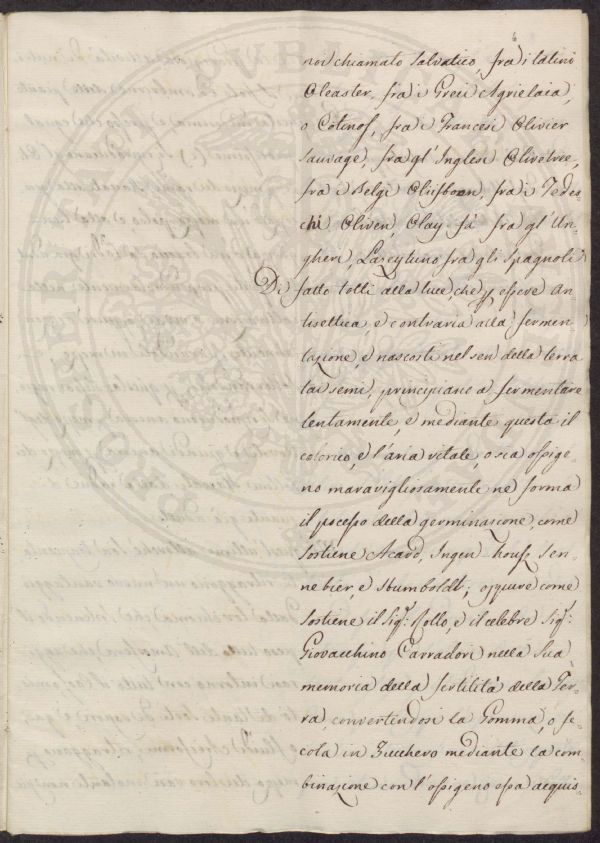 6
noi chiamato Salvatico, fra i Latini
Oleaster, fra i Greci Agrielaia,
o Cotinos, fra i Francesi Olivier
Sauvage, fra gl' Inglesi Olivetree,
fra i Belgi Oliifboon, fra i Tedes-
chi Oliven, Olay fà fra gl' Un-
gheri, Lazeytuno fra gli Spagnoli
Di fatto tolti alla luce che p essere An
tisettica, e contraria alla fermen
tazione, e nascosti nel sen della terra
tai semi, principiano a fermentare
lentamente, e mediante questa il
calorico, e l'aria vitale, o sia ossige
no maravigliosamente ne forma
il pocesso della germinazione, come
sostiene Acard, Ingen-housz Sen-
nebier, e Humboldt; oppure come
sostiene il Sig.r Rollo, e il celebre Sig.r
Giovacchino Carradori nella Sua
memoria della fertilità della Ter-
ra, convertendosi la Gomma, o fe-
cola in Zucchero mediante la com-
binazione con l'ossigeno essa acquis-